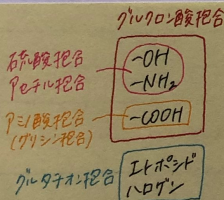 グルクロン酸抱合
硫酸抱合
アセチル抱合
-OH
-NH₂
アミノ酸抱合
(グリシン抱合)
-COOH
グルタチオン抱合
エトポシド
ハロゲン